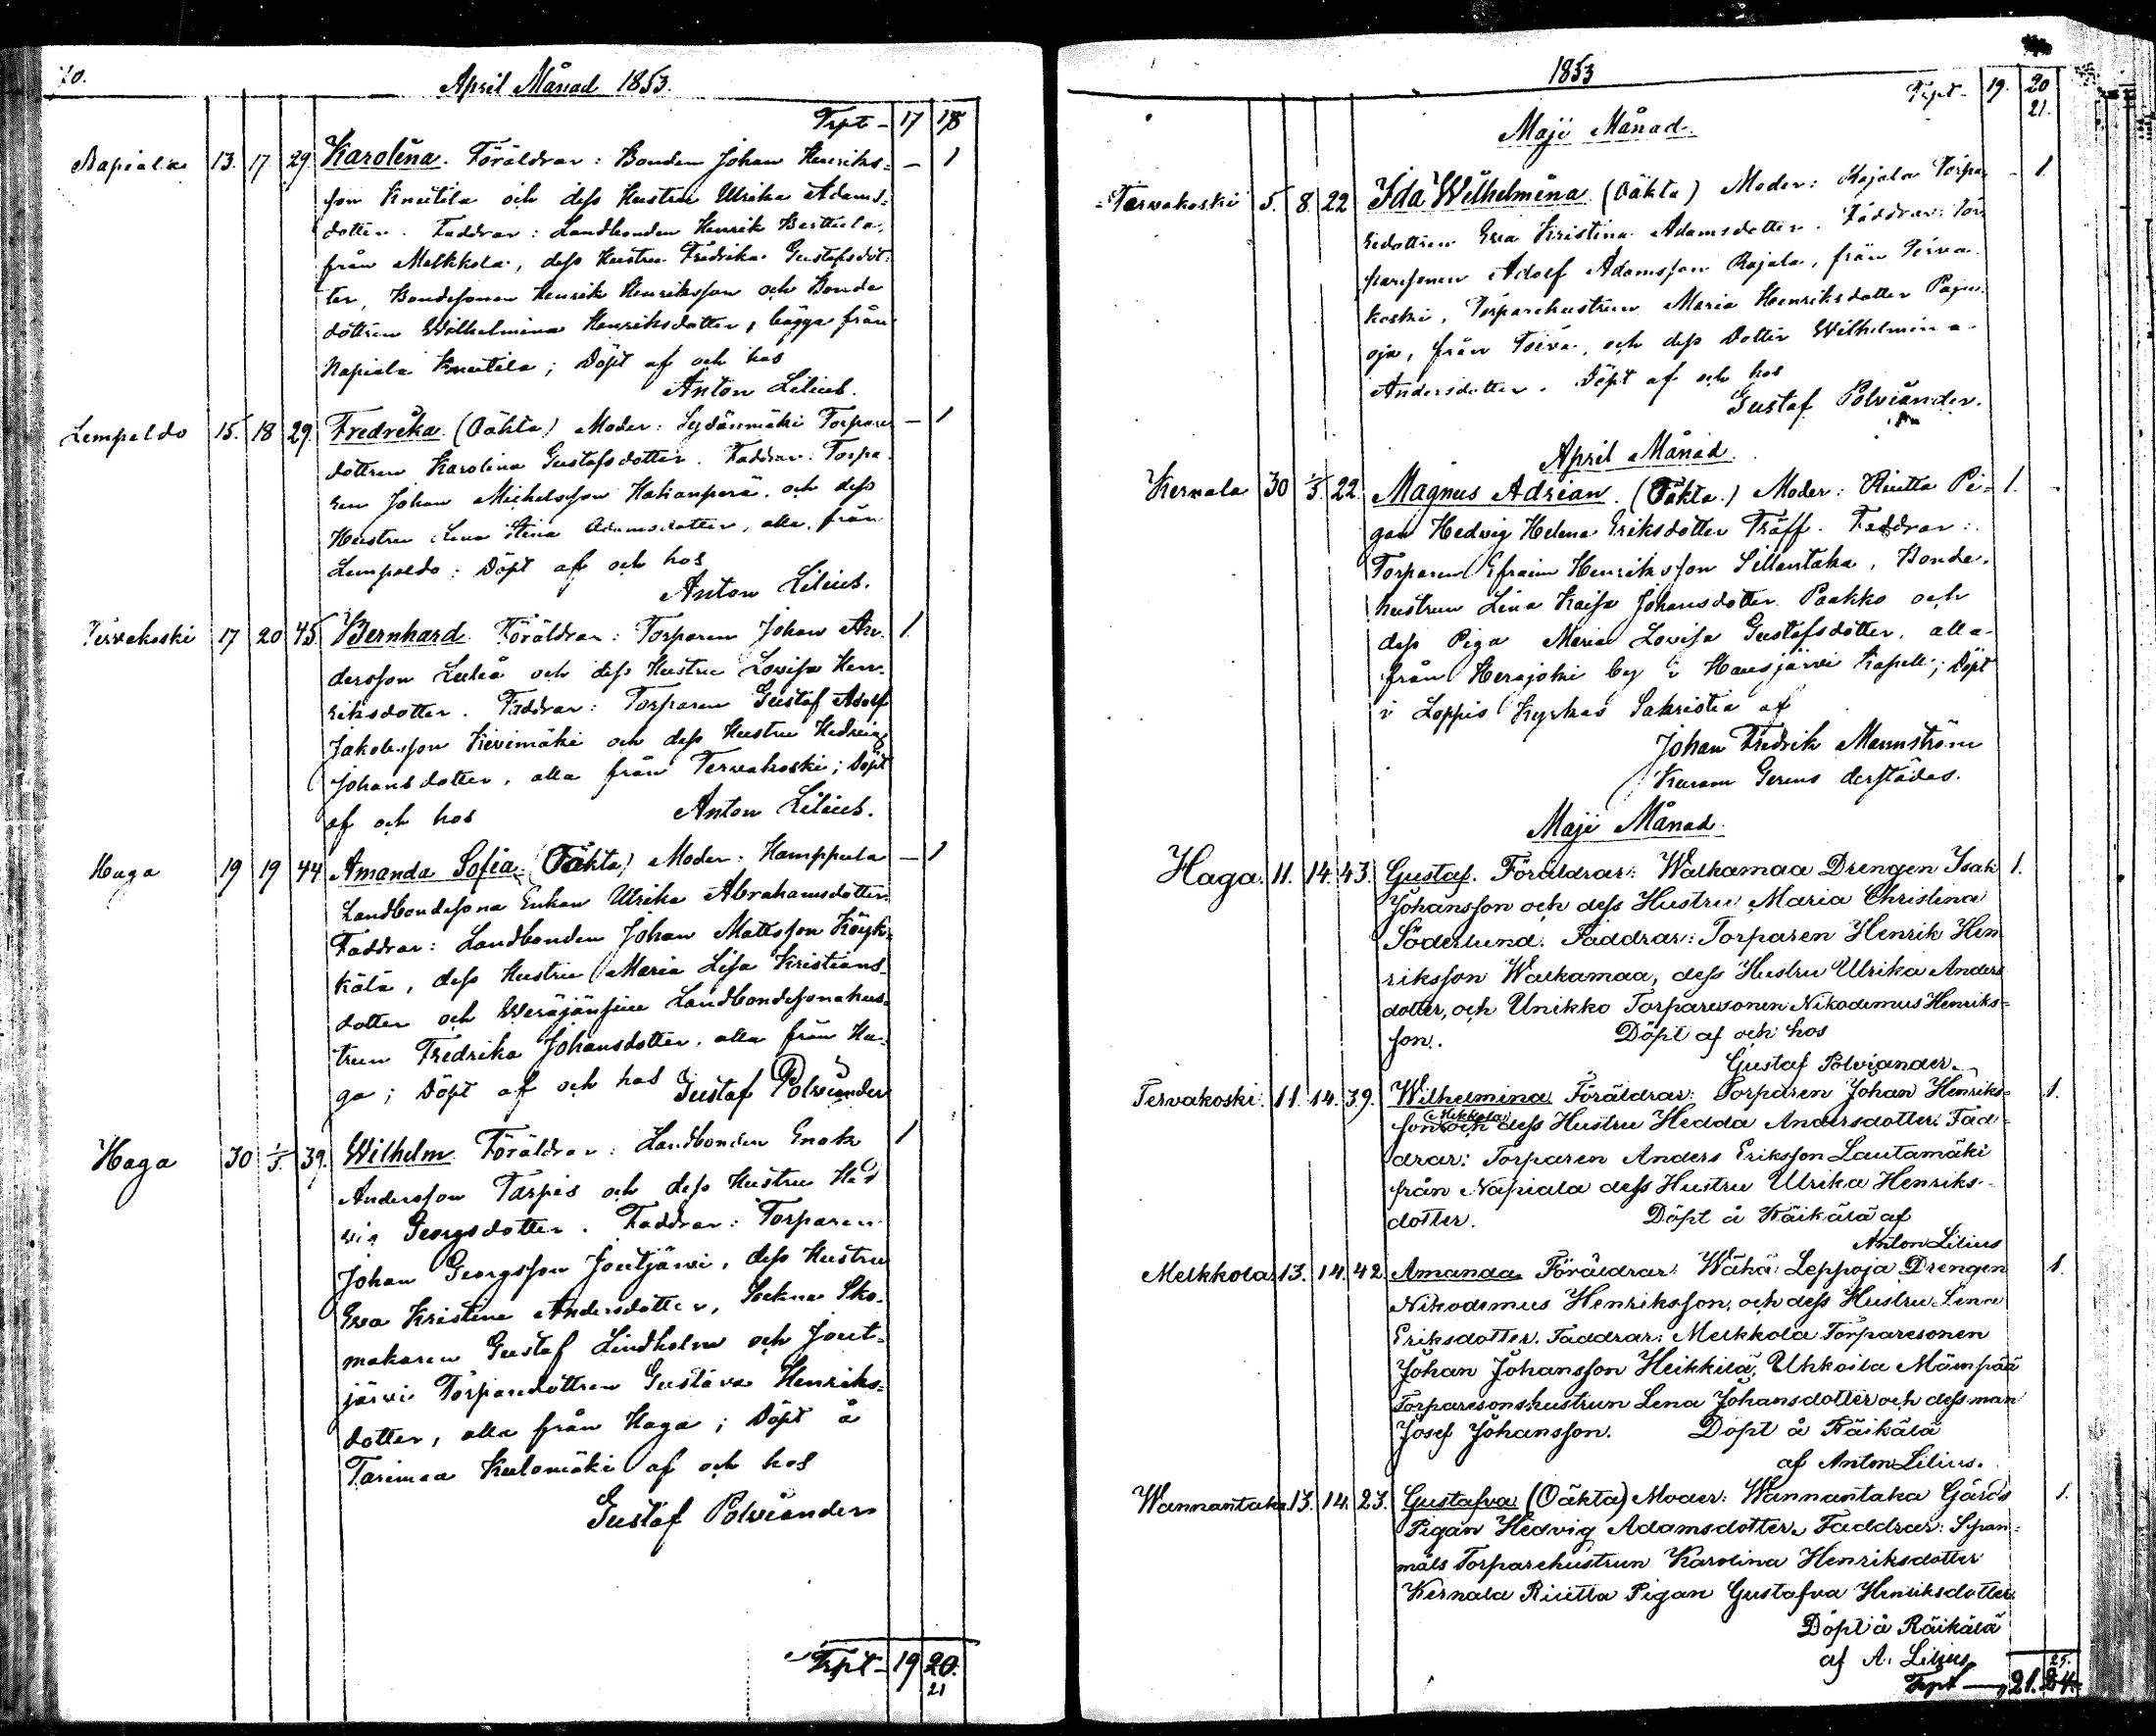 70.
April Månad 1853.
Trpt - 17 18
Napiala 13. 17 29. Karolina. Föräldrar: Bonden Johan Henriks= - 1
son Knuutila och dess Hustru Ulrika Adams=
dotter. Faddrar: Landbonden Henrik Berttula,
från Melkkola, dess Hustru Fredrika Gustafsdot=
ter, Bondesonen Henrik Henriksson och Bonde
dottren Wilhelmina Henriksdotter, bägge från
Napiala Knuutila; Döpt af och hos
Anton Lilius.
Lempeldo 15. 18 29. Fredrika. (Oäkta) Moder: Sydänmäki Torpare - 1
dottren Karolina Gustafsdotter. Faddrar: Torpa
ren Johan Michelsson Hakanperä, och dess
Hustru Lena Stina Adamsdotter, alla från
Lempeldo; Döpt af och hos
Anton Lilius.
Tervakoski 17 20 45. Bernhard. Föräldrar: Torparen Johan An= 1
dersson Luleå och dess Hustru Lovisa Hen=
riksdotter. Faddrar: Torparen Gustaf Adolf
Jakobsson Kivimäki och dess Hustru Hedvig
Johansdotter, alla från Tervakoski; Döpt
af och hos Anton Lilius.
Haga 19 19 44 Amanda Sofia. (Oäkta) Moder: Kamppula - 1
Landbondesona Enkan Ulrika Abrahamsdotter.
Faddrar: Landbonden Johan Mattsson Köyk=
kälä, dess Hustru Maria Lisa Kristians=
dotter och Weräjänsuu Landbondesonahus=
trun Fredrika Johansdotter, alla från Ha=
ga; Döpt af och hos Gustaf Polviander
Haga 30 1/5. 39. Wilhelm. Föräldrar: Landbonden Enok 1
Andersson Tarpis och dess Hustru Hed
vig Georgsdotter. Faddrar: Torparen
Johan Georgsson Joutjärvi, dess Hustru
Eva Kristina Andersdotter, Sockne Sko=
makaren Gustaf Lindholm och Jout=
järvi Torparedottren Gustava Henriks=
dotter, alla från Haga; Döpt å
Tarimaa Kulomäki af och hos
Gustaf Polviander
Trpt - 19 20.
21
1853
Trpt - 19. 20
21.
Maji Månad.
Tervakoski 5. 8. 22 Ida Wilhelmina. (Oäkta) Moder: Rajala Torpa= - 1.
redottren Eva Kristina Adamsdotter. Faddrar: Tor=
paresonen Adolf Adamsson Rajala, från Terva=
koski, Torparehustrun Maria Henriksdotter Paju=
oja, från Toiva, och dess Dotter Wilhelmina
Andersdotter. Döpt af och hos
Gustaf Polviander.
April Månad.
Kernala 30 1/5. 22. Magnus Adrian. (Oäkta.) Moder: Riutta Pi= 1.
gan Hedvig Helena Eriksdotter Träff. Faddrar:
Torparen Efraim Henriksson Sillantaka, Bonde=
hustrun Lena Kaisa Johansdotter Paakko och
dess Piga Maria Lovisa Gustafsdotter, alla
från Herajoki by i Hausjärvi Kapell; Döpt
i Loppis Kyrkas Sakristia af
Johan Fredrik Mannström
Kuram Gerens derstädes.
Maji Månad.
Haga. 11. 14. 43. Gustaf. Föräldrar: Walkamaa Drengen Isak 1.
Johansson och dess Hustru Maria Christina
Söderlund. Faddrar: Torparen Henrik Hen
riksson Walkamaa, dess Hustru Ulrika Anders
dotter, och Unikko Torparesonen Nikodemus Henriks=
son. Döpt af och hos
Gustaf Polviander.
Tervakoski. 11. 14. 39. Wilhelmina Föräldrar: Torparen Johan Henriks= 1.
son Mikkola och dess Hustru Hedda Andersdotter. Fad=
drar: Torparen Anders Eriksson Lautamäki
från Napiala dess Hustru Ulrika Henriks=
dotter. Döpt å Räikälä af
Anton Lilius
Melkkola. 13. 14. 42. Amanda Föräldrar: Wähä Leppoja Drengen 1.
Nikodemus Henriksson, och dess Hustru Lena
Eriksdotter. Faddrar: Melkkola Torparesonen
Johan Johansson Heikkilä, Uhkoila Mäenpää
Torparesonshustrun Lena Johansdotter och dess man
Josef Johansson. Döpt å Räikälä
af Anton Lilius.
Wannantaka 13. 14. 23. Gustafva (Oäkta) Moder: Wannantaka Gårds 1.
Pigan Hedvig Adamsdotter. Faddrar: Span=
mäls Torparehustrun Karolina Henriksdotter
Kernala Riutta Pigan Gustafva Henriksdotter.
Döpt å Räikälä
af A. Lilius
25.
Trpt - 21. 24.